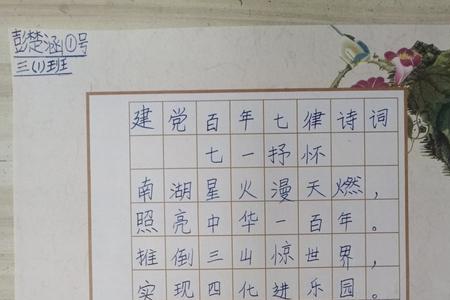 彭楚涵①号
三(1)班
建党百年七律诗词
七一抒怀
南湖星火漫天燃，
照亮中华一百年。
推倒三山惊世界，
实现四化进乐园。